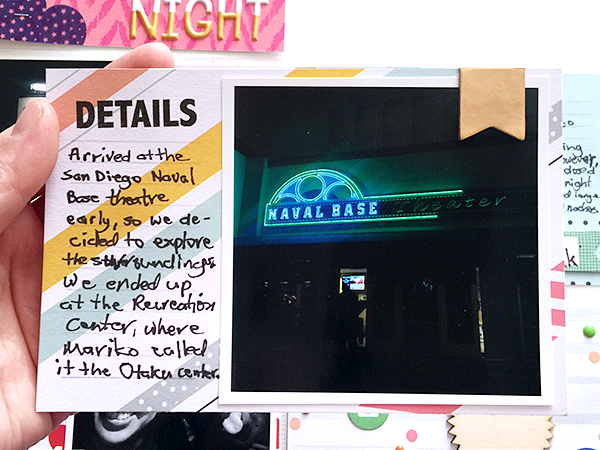 NIGHT
DETAILS
Arrived at the
San Diego Naval
Base theatre
early, so we de-
cided to explore
the surroundings.
We ended up
at the Recreation
Center, where
Mariko called
it the Otaku center.
NAVAL BASE Theater
night
k